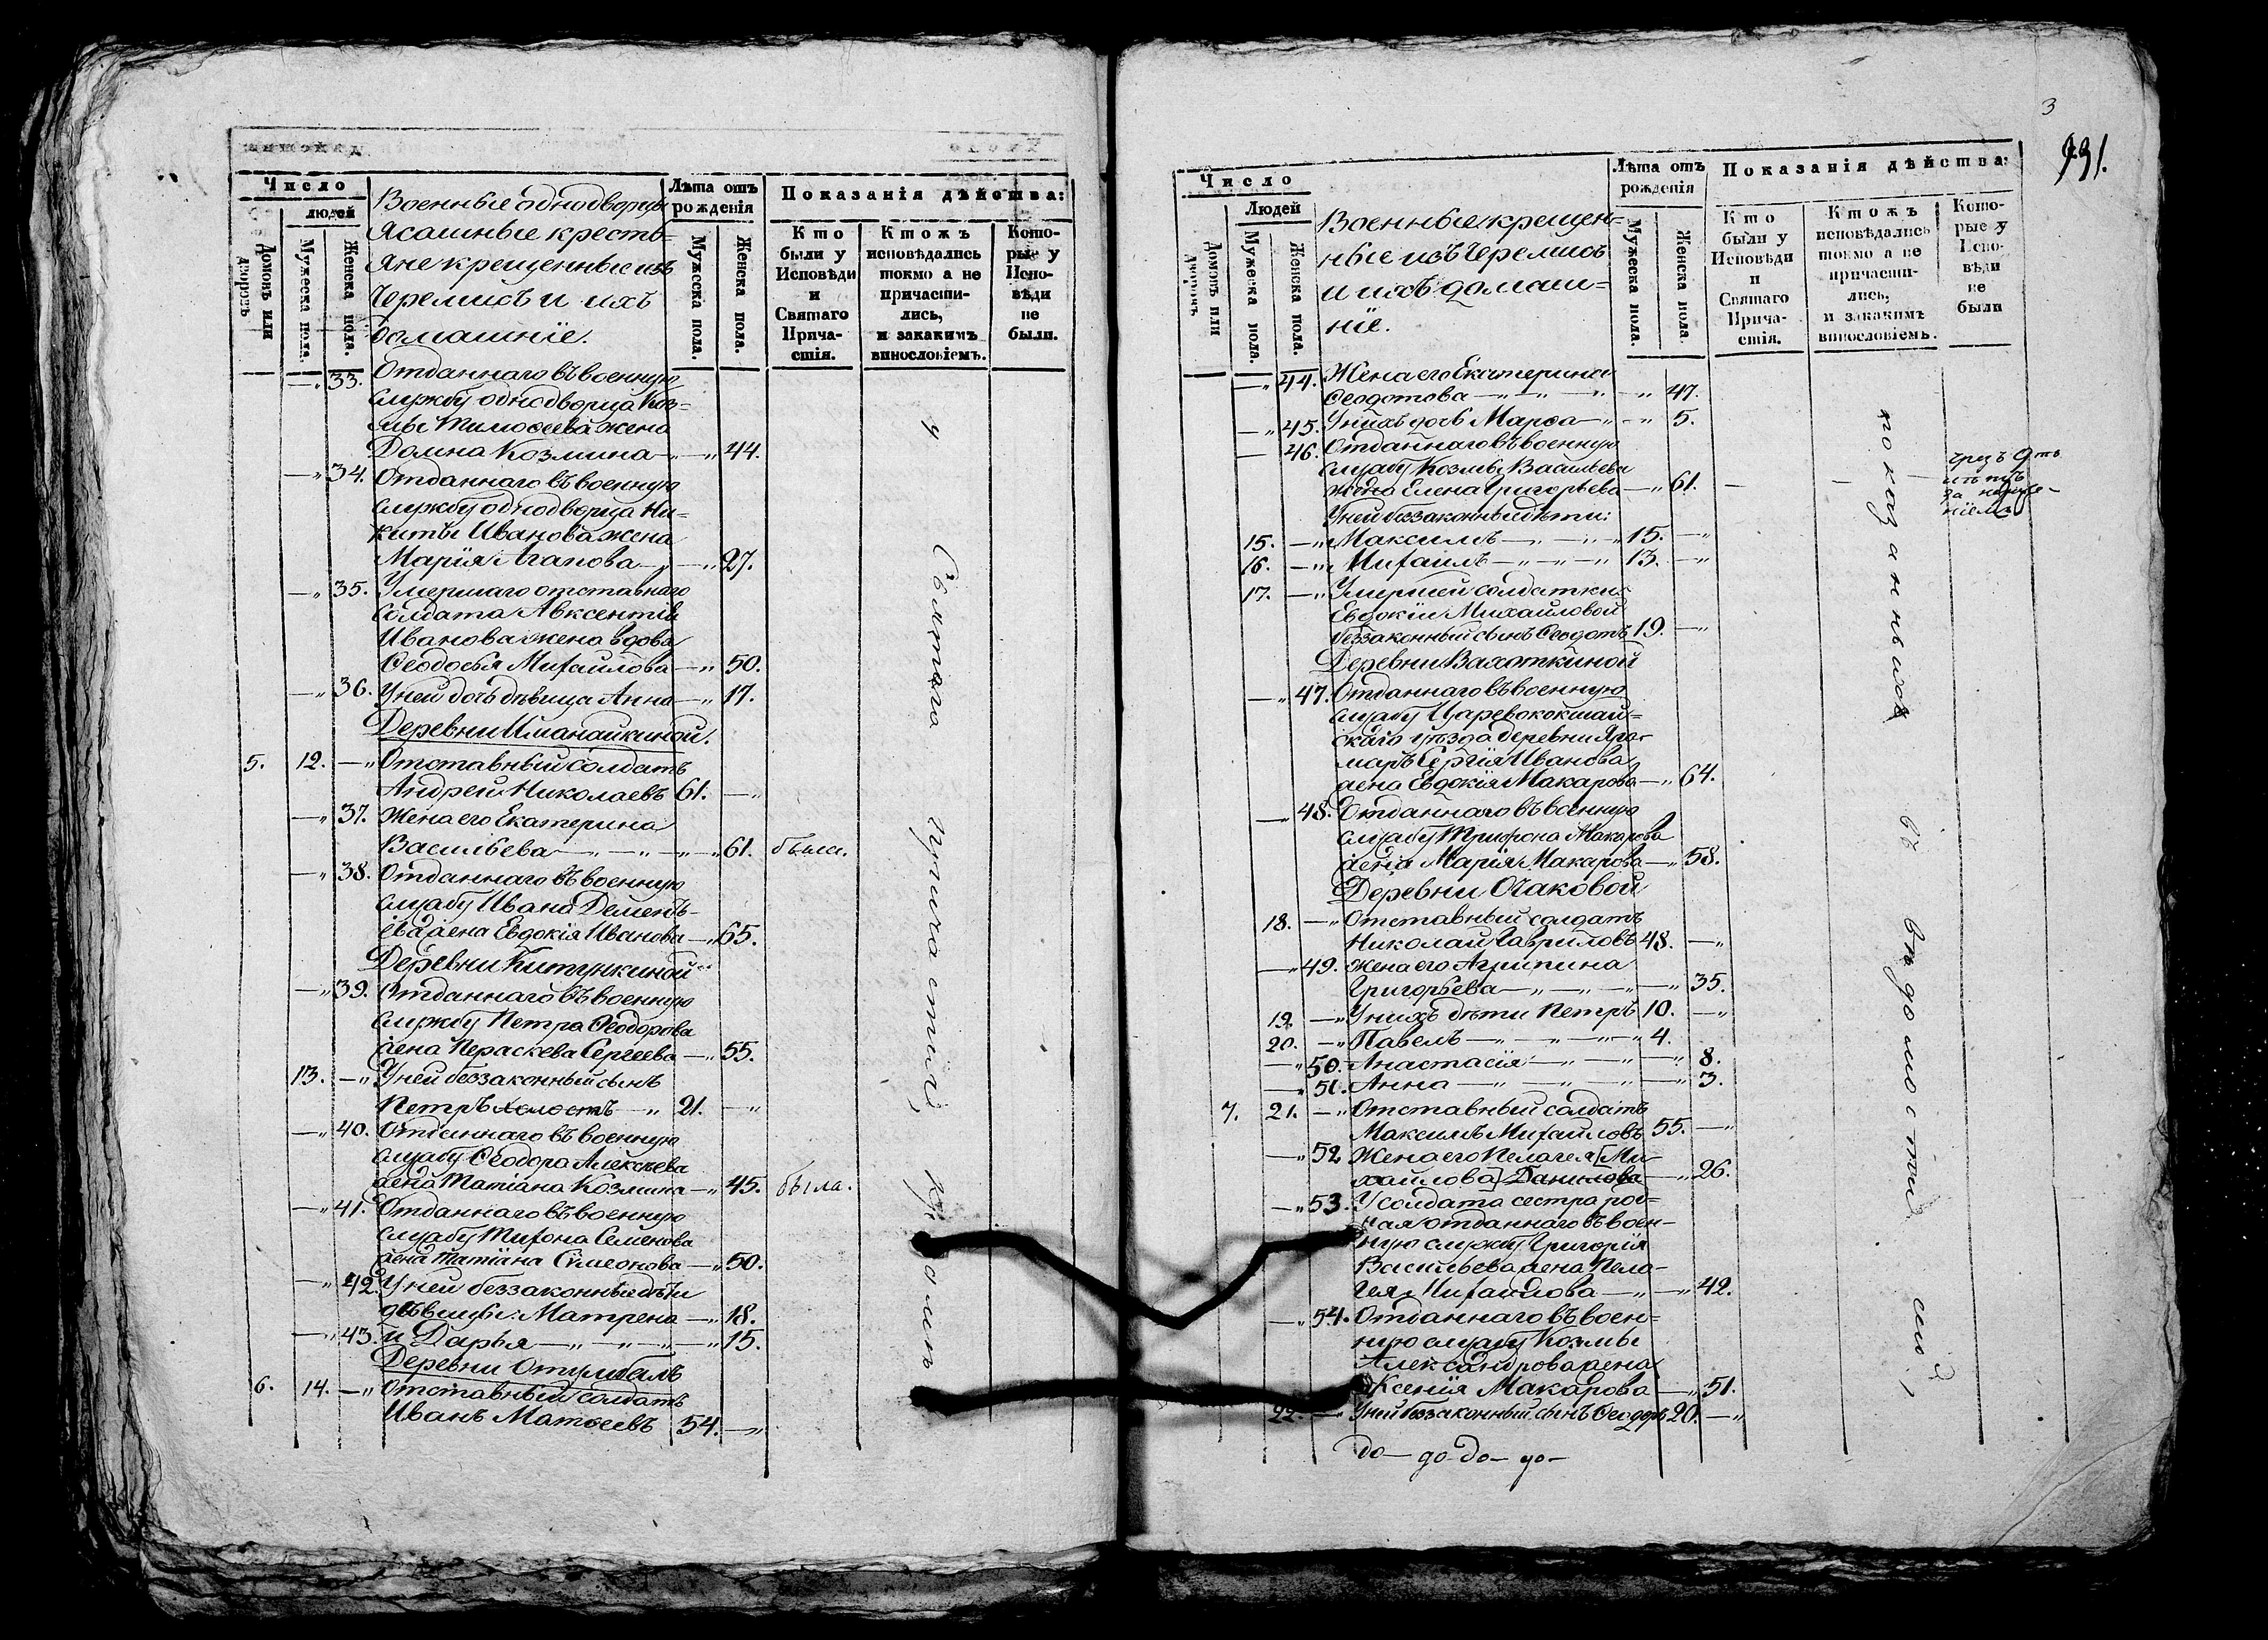 Число
людей
Домовъ или дворовъ
Мужеска пола.
Женска пола.
Военные однодворцы
Ясашные кресть-
яне крещенные изъ
Черемисъ и ихъ
домашніе.
Лѣта отъ рожденія
Мужеска пола.
Женска пола.
Показанія дѣйства:
Кто были у Исповѣди и Святаго Прича- стія.
Ктожъ исповѣдались токмо а не причасти- лись, и закакимъ винословіемъ.
Кото- рые у Испо- вѣди не были.
—„ 33. Отданнаго въ военную
службу однодворца Коз-
мы Тимоѳеева жена
Домна Козмина —„ —„ 44.
—„ 34. Отданнаго въ военную
службу однодворца Ни-
киты Иванова жена
Марія Агапова —„ —„ 27.
—„ 35. Умершаго отставнаго
солдата Авксентія
Иванова жена вдова
Ѳеодосья Михайлова —„ 50.
—„ 36. У ней дочь дѣвица Анна —„ 17.
Деревни Иманайкиной.
5. 12. —„ Отставный солдатъ
Андрей Николаевъ 61. —„
—„ 37. Жена его Екатерина
Васильева —„ —„ —„ 61. была.
—„ 38. Отданнаго въ военную
службу Ивана Демень-
ева жена Евдокія Иванова —„ 65.
Деревни Китункиной
—„ 39. Отданнаго въ военную
службу Петра Ѳеодорова
жена Параскева Сергеева —„ 55.
13. —„ У ней беззаконный сынъ
Петръ холостъ —„ 21. —„
—„ 40. Отданнаго въ военную
службу Ѳеодора Алексѣева
жена Татіана Козмина —„ 45. была.
—„ 41. Отданнаго въ военную
службу Тихона Семенова
жена Татіана Симеонова —„ 50.
—„ 42. У ней беззаконные дѣти
дѣвицы: Матрена —„ 18.
—„ 43. и Дарья —„ —„ —„ 15.
Деревни Отымбалъ
6. 14. —„ Отставный солдатъ
Иванъ Матѳеевъ 54. —„
у Святаго причастія, кромѣ
3
991.
Число
Людей
Домовъ или дворовъ
Мужеска пола.
Женска пола.
Военные крещен-
ные изъ Черемисъ
и ихъ домаш-
ніе.
Лѣта отъ рожденія
Мужеска пола.
Женска пола.
Показанія дѣйства:
Кто были у Исповѣди и Святаго Прича- стія.
Ктожъ исповѣдались токмо а не причасти- лись, и закакимъ винословіемъ.
Кото- рые у Испо- вѣди не были
—„ 44. Жена его Екатерина
Ѳеодотова —„ —„ —„ 47.
—„ 45. У нихъ дочь Марѳа —„ —„ 5.
— 46. Отданнаго въ военную
службу Козмы Васильева
жена Елена Григорьева —„ 61. — —
У ней беззаконные дѣти:
15. —„ Максимъ —„ —„ 15. —„
16. —„ Михаилъ —„ —„ —„ 13. —„
17. —„ Умершей солдатки
Евдокіи Михайловой
беззаконный сынъ Ѳеодотъ 19. —„
Деревни Вахоткиной
—„ 47. Отданнаго въ военную
службу Царевококшай-
скаго уѣзда деревни Яро-
маръ Сергія Иванова
жена Евдокія Макарова —„ 64.
—„ 48. Отданнаго въ военную
службу Трифона Макарова
жена Марія Макарова —„ 58.
Деревни Очаковой
18. —„ Отставный солдатъ
Николай Гавриловъ 48. —„
—„ 49. Жена его Агрипина
Григорьева —„ —„ —„ —„ 35.
19 —„ У нихъ дѣти Петръ 10. —„
20. —„ Павелъ —„ —„ —„ 4.
—„ 50. Анастасія —„ —„ —„ 8.
—„ 51. Анна —„ —„ —„ 3.
7. 21. —„ Отставный солдатъ
Максимъ Михайловъ 55. —„
—„ 52 Жена его Пелагея [Ми-
хайлова] Данилова —„ 26.
—„ 53. У солдата сестра род-
ная отданнаго въ воен-
ную службу Григорія
Васильева жена Пела-
гея Михайлова —„ —„ 42.
—„ 54. Отданнаго въ воен-
ную службу Козмы
Александрова жена
Ксенія Макарова —„ 51.
22. —„ У ней беззаконный сынъ Ѳеодоръ 20. —„
до — до — до — до —
чрезъ 9ть
показанныхъ въ вѣдомости сей,